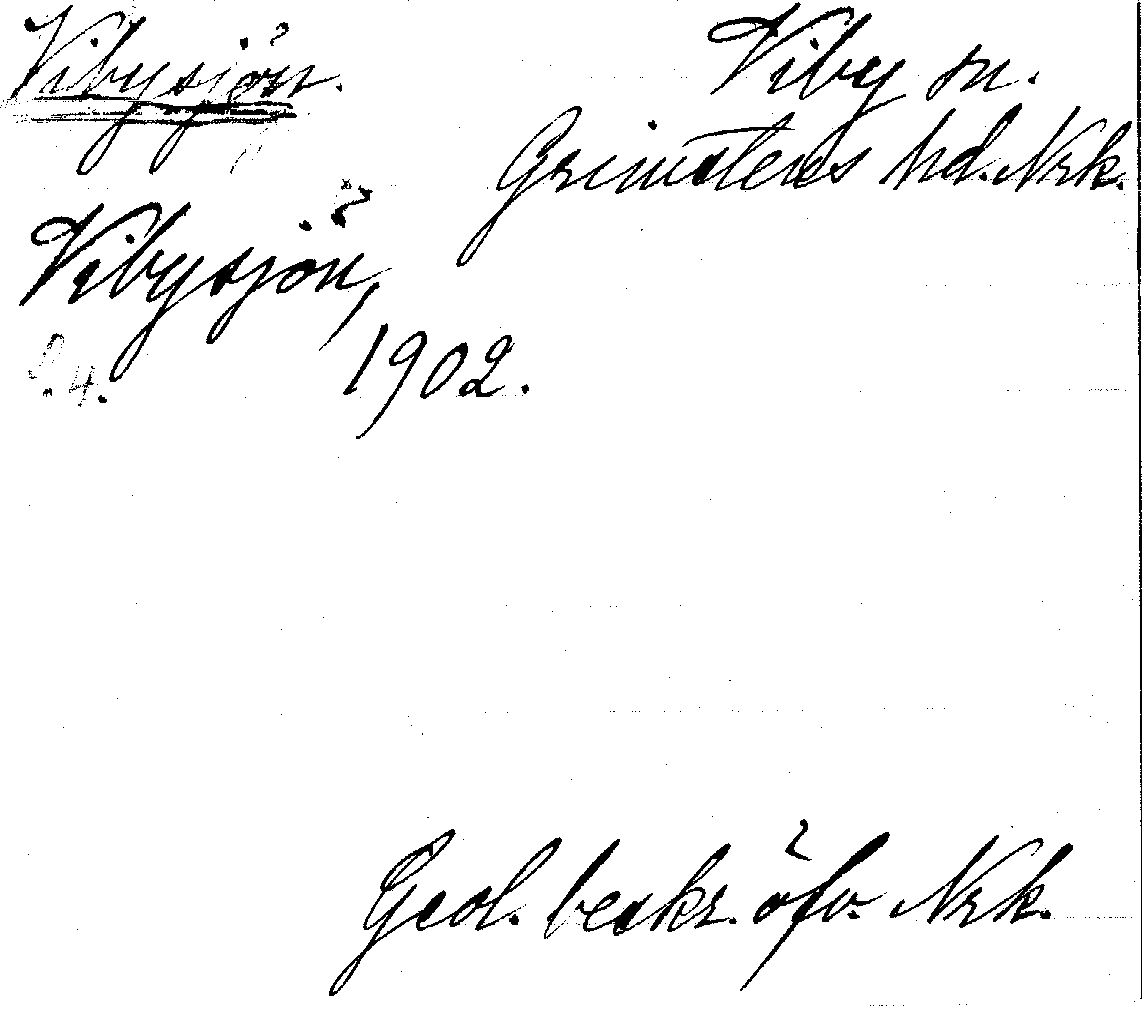 Vibysjön. Viby sn.
Grimstens hd. Nrk.
Vibysjön,
1902.
Geol. beskr. öfv. Nrk.